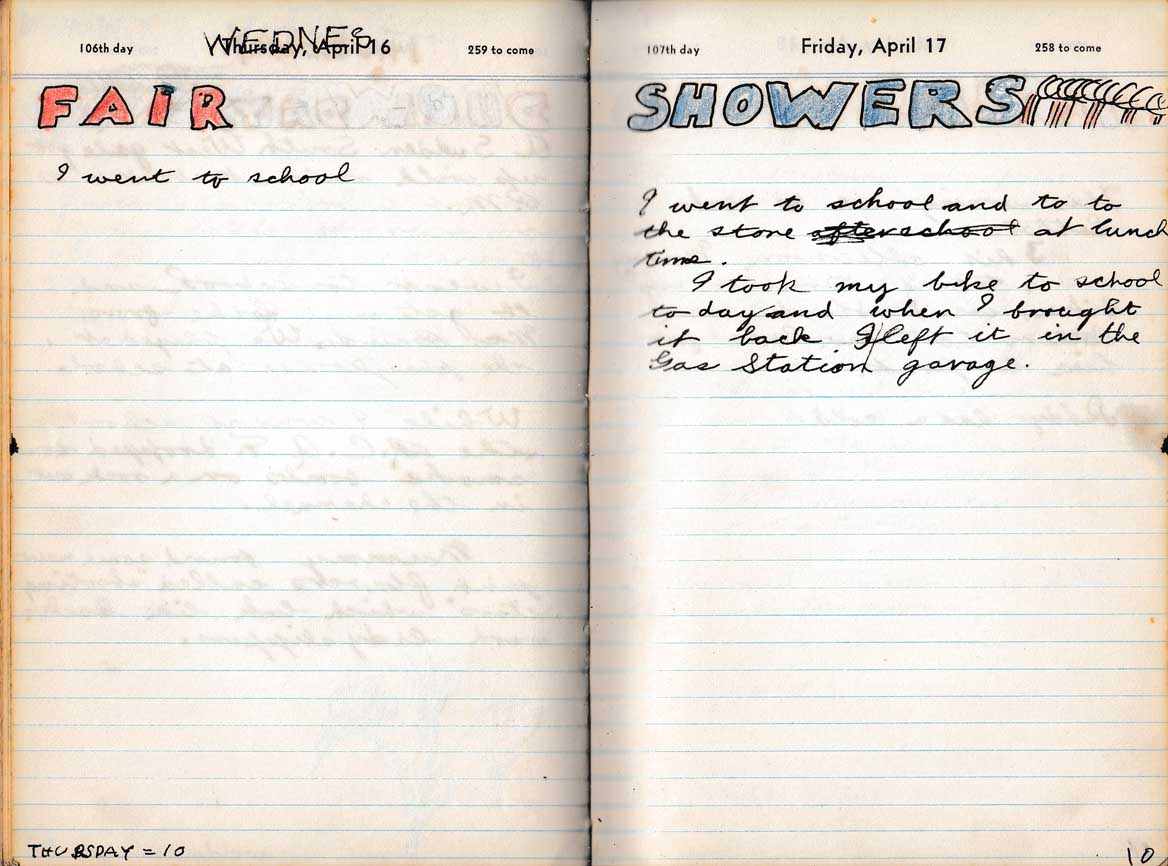 106th day
WEDNES
Thursday, April 16
259 to come
FAIR
I went to school
THURSDAY = 10
107th day
Friday, April 17
258 to come
SHOWERS
I went to school and to to
the store after school at lunch
time.
I took my bike to school
to day and when I brought
it back I left it in the
Gas Station garage.
10